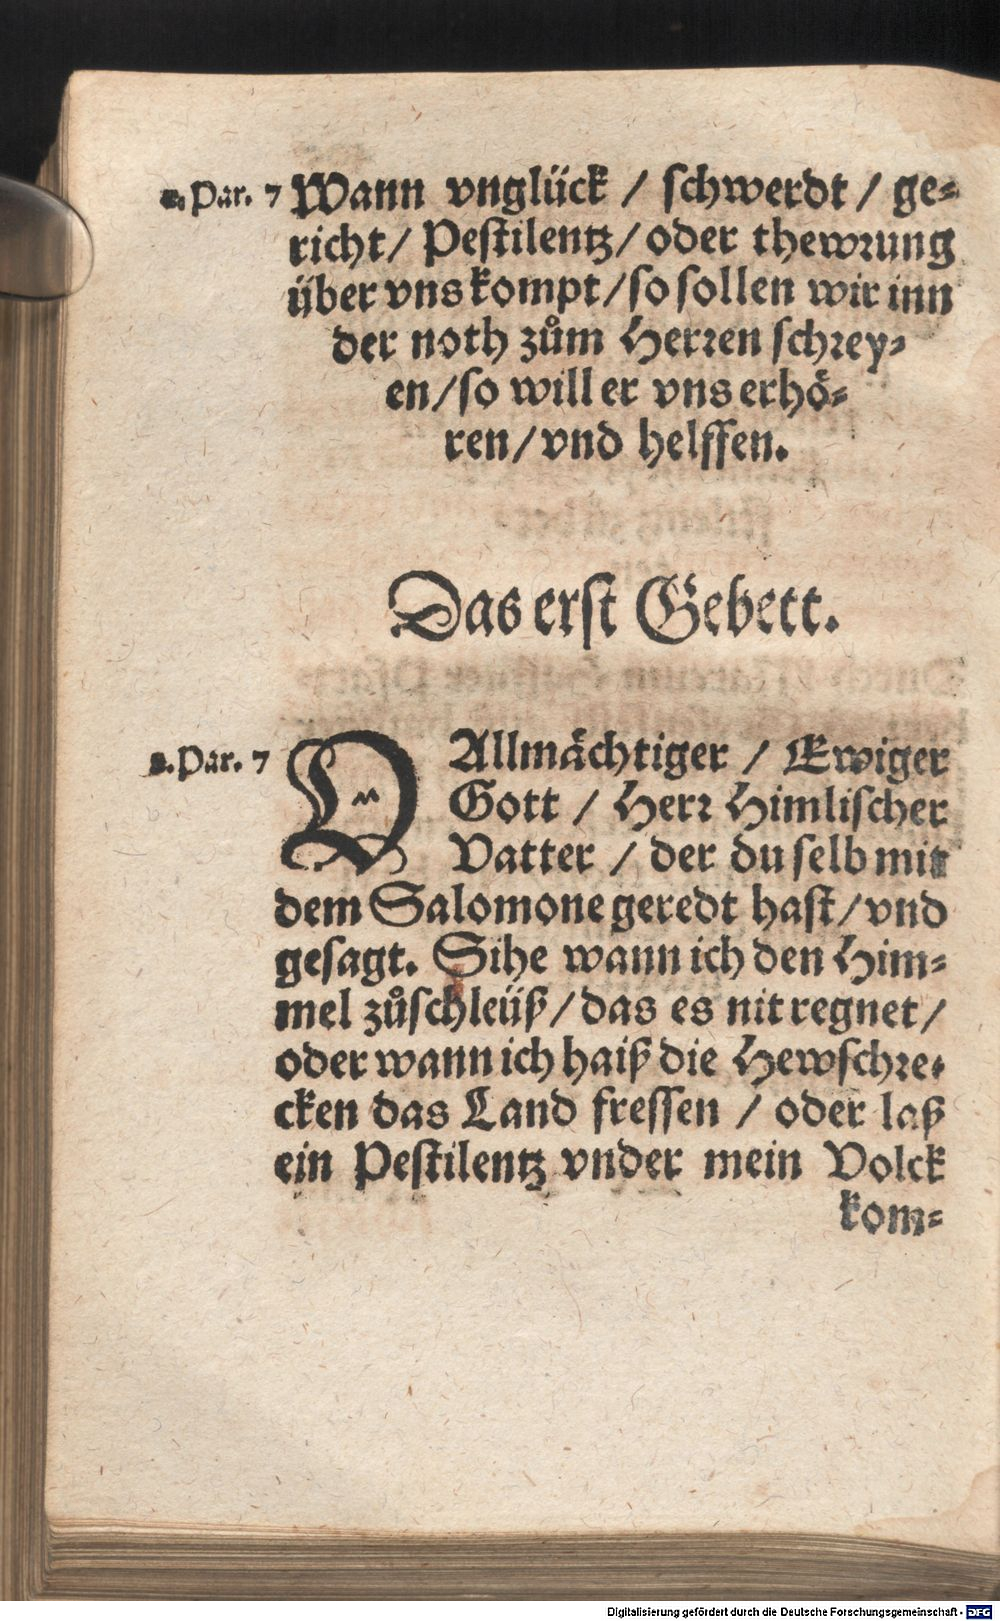 2. Par. 7 Wann vnglück / schwerdt / ge⸗
richt / Pestilentz / oder thewrung
über vns kompt / so sollen wir inn
der noth zům Herren schrey⸗
en / so will er vns erhö⸗
ren / vnd helffen.
Das erst Gebett.
2. Par. 7 O Allmächtiger / Ewiger
Gott / Herr Himlischer
Vatter / der du selb mit
dem Salomone geredt hast / vnd
gesagt. Sihe wann ich den Him⸗
mel zůschleüß / das es nit regnet /
oder wann ich haiß die Hewschre⸗
cken das Land fressen / oder laß
ein Pestilentz vnder mein Volck
kom⸗
Digitalisierung gefördert durch die Deutsche Forschungsgemeinschaft - DFG